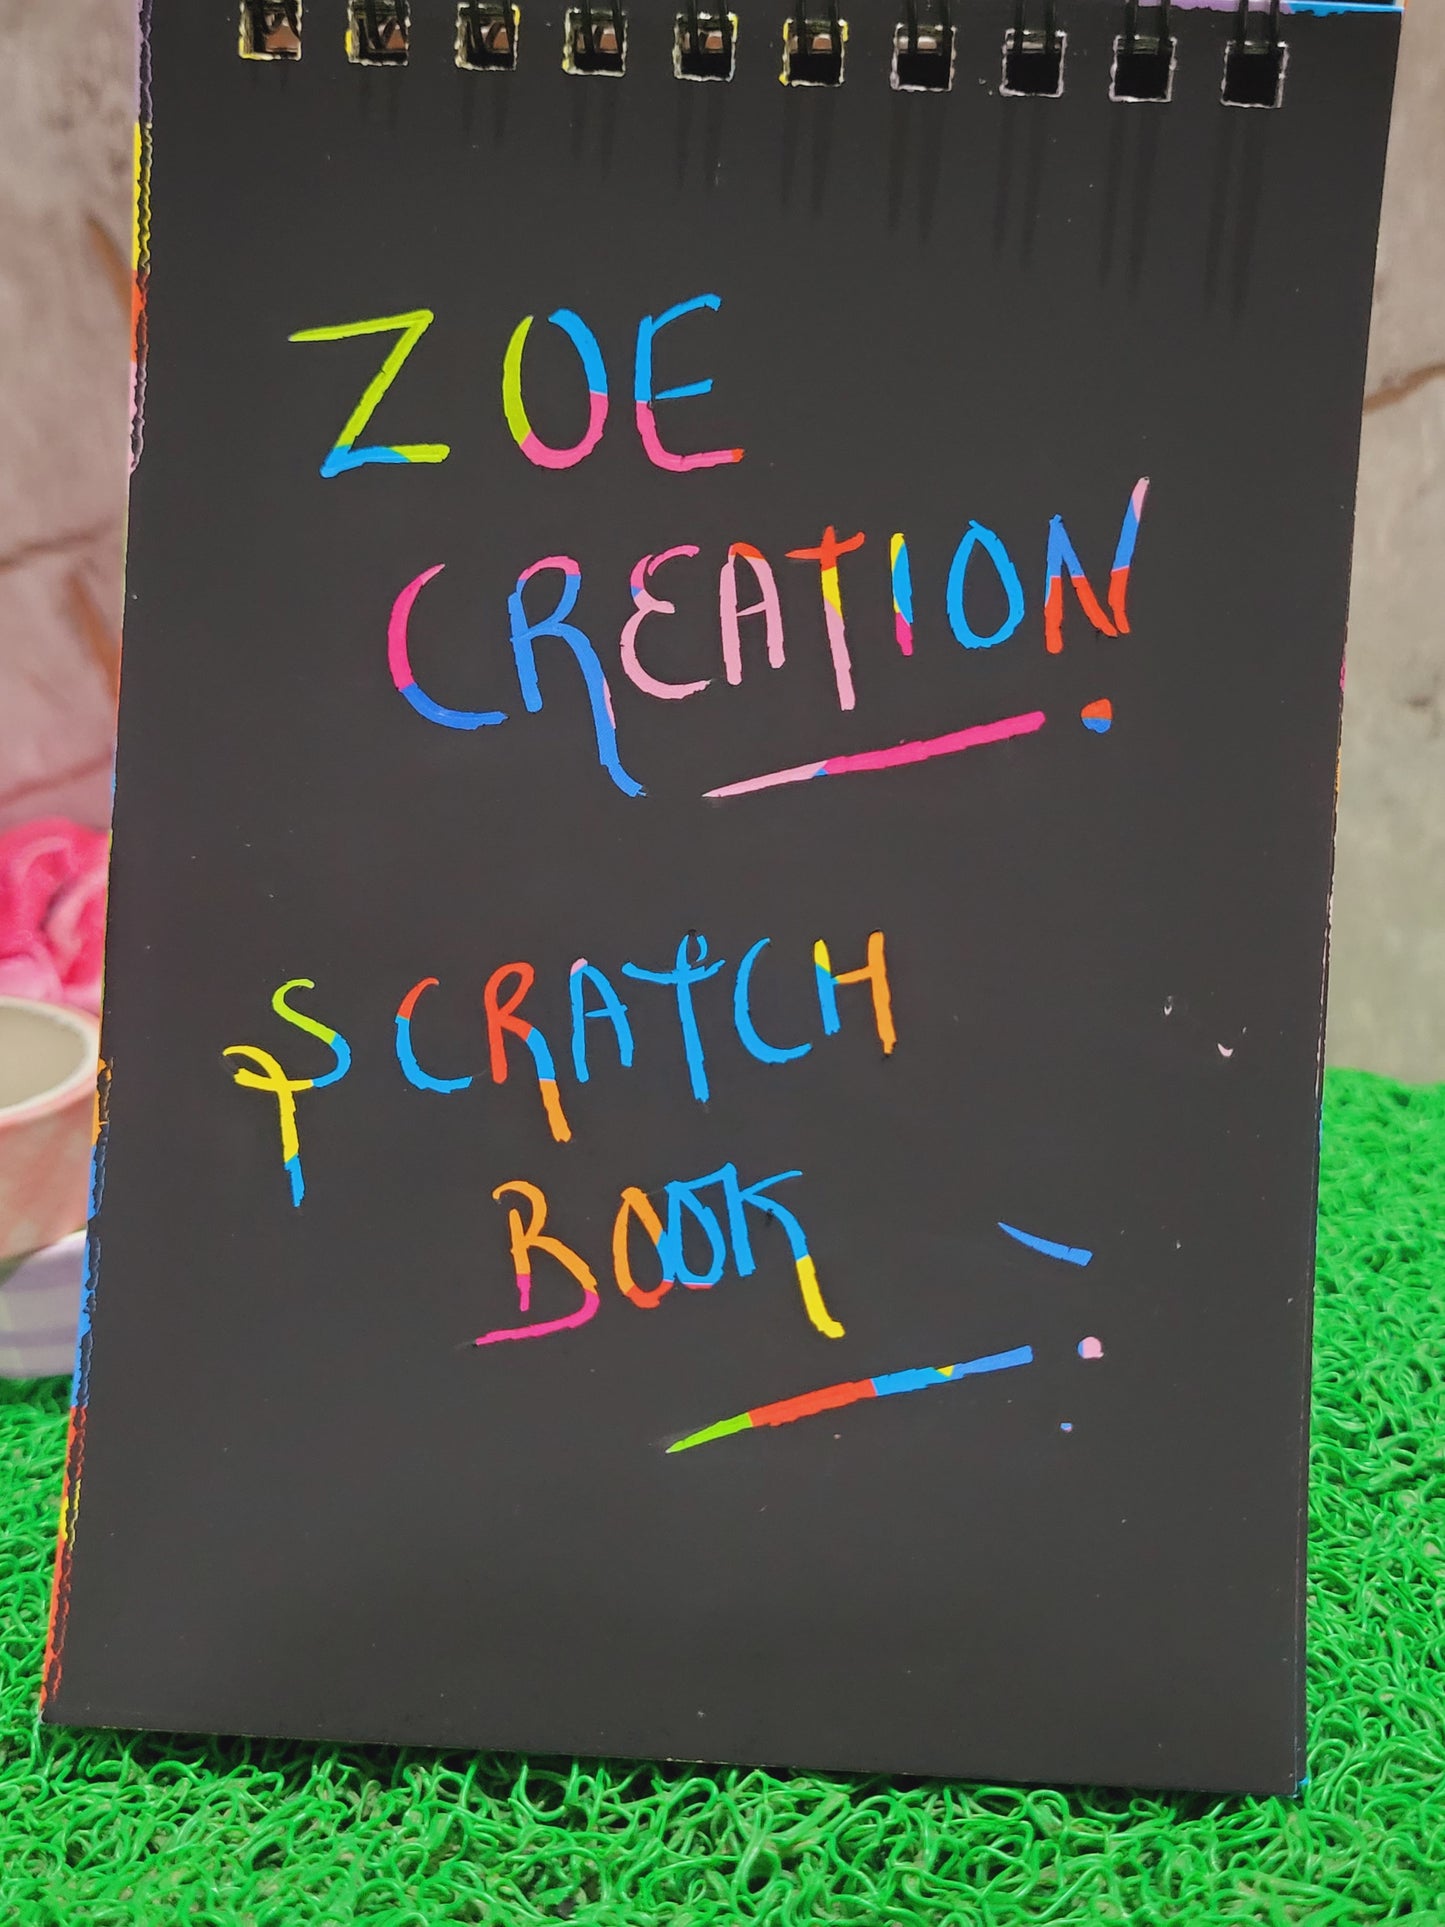 ZOE
CREATION
SCRATCH
BOOK